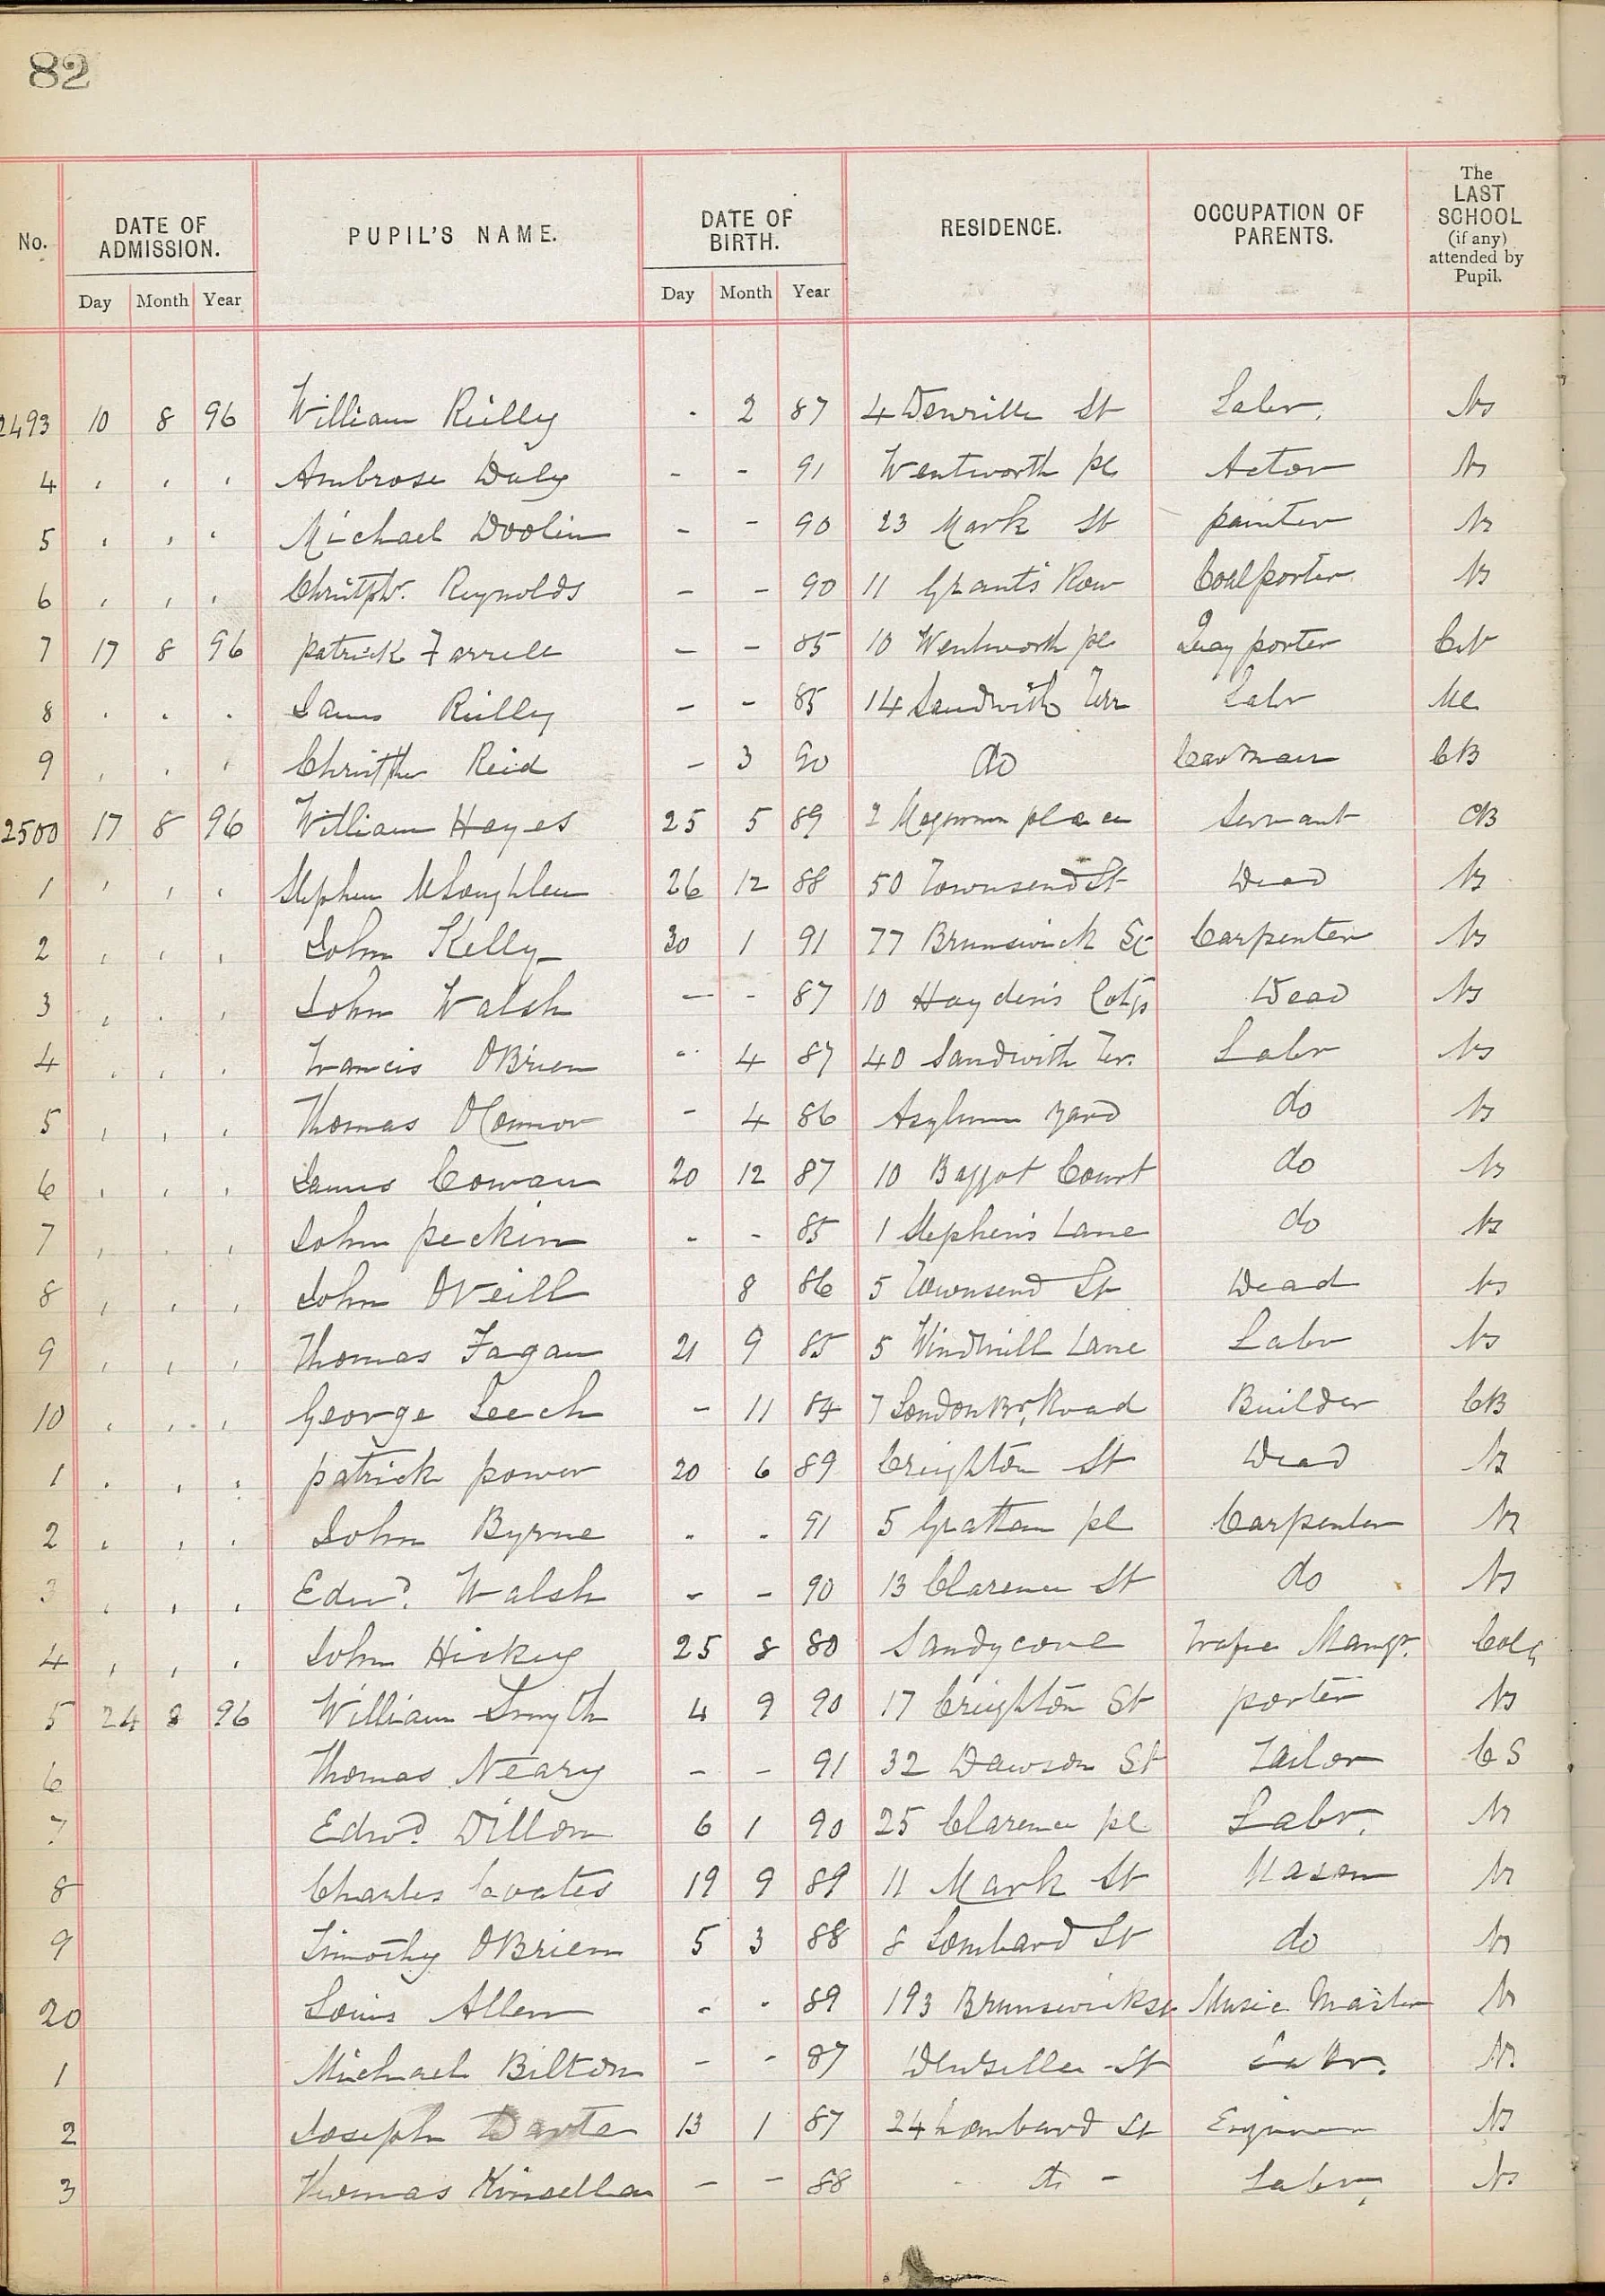 82
No. DATE OF ADMISSION. PUPIL'S NAME. DATE OF BIRTH. RESIDENCE. OCCUPATION OF PARENTS. The LAST SCHOOL (if any) attended by Pupil.
Day Month Year Day Month Year
2493 10 8 96 William Reilly - 2 87 4 St Labr. Ns
4 , , , Ambrose Daly - - 91 Wentworth pl Actor Ns
5 , , , Michael Doolin - - 90 23 Mark St painter Ns
6 , , , Christphr. Reynolds - - 90 11 Grants Row Coalporter Ns
7 17 8 96 patrick Farrell - - 85 10 Wentworth pl Quay porter
8 . . . James Reilly - - 85 14 Sandwith Terr Labr
9 , , , Christphr Reid - 3 90 do Carman CB
2500 17 8 96 William Hayes 25 5 89 2 place Servant CB
1 , , , Stephen McLoughlen 26 12 88 50 Townsend St Dead Ns
2 , , , John Kelly 30 1 91 77 Brunswick St Carpenter Ns
3 , . , John Walsh - - 87 10 Hayden's Cotgs Dead Ns
4 , , , Francis OBrien - 4 87 40 Sandwith Ter. Labr Ns
5 , , , Thomas OConnor - 4 86 Asylum yard do Ns
6 , , , James Cowan 20 12 87 10 Baggot Court do Ns
7 , , , John peckin - - 85 1 Stephens Lane do Ns
8 , , , John ONeill 8 86 5 Townsend St Dead Ns
9 , , , Thomas Fagan 21 9 85 5 Windmill Lane Labr Ns
10 , , , George Leech - 11 84 7 London Br. Road Builder CB
1 . , , patrick power 20 6 89 Creighton St Dead Ns
2 , , , John Byrne - - 91 5 Grattan pl Carpenter Ns
3 , , , Edwd. Walsh - - 90 13 Clarence St do Ns
4 , , , John Hickey 25 8 80 Sandycove Mangr. Colg
5 24 8 96 William Smyth 4 9 90 17 Creighton St porter Ns
6 Thomas Neary - - 91 32 Dawson St Tailor CS
7 Edwd. Dillon 6 1 90 25 Clarence pl Labr. Ns
8 Charles Coates 19 9 89 11 Mark St Mason Ns
9 Timothy OBrien 5 3 88 8 Lombard St do Ns
20 Louis Allen - - 89 193 Brunswick st Music Master Ns
1 Michael Bilton - - 87 St Labr. Ns
2 Joseph 13 1 87 24 Lombard St Engineer Ns
3 Thomas Kinsella - - 88 - do - Labr, Ns